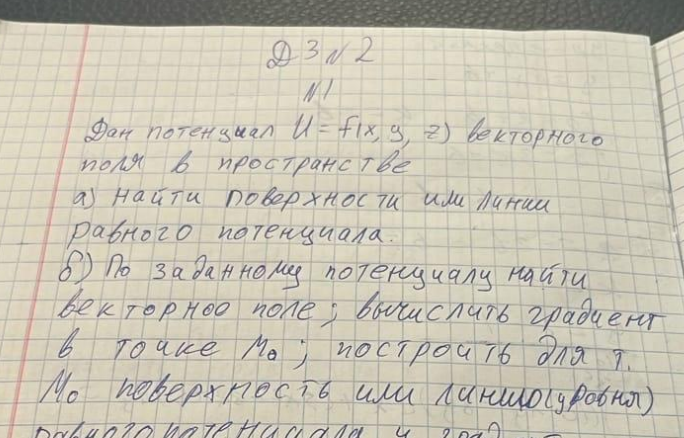 ДЗ №2
№1
Дан потенциал U = f(x, y, z) векторного
поля в пространстве
а) Найти поверхности или линии
равного потенциала.
б) По заданному потенциалу найти
векторное поле; вычислить градиент
в точке M₀; построить для т.
M₀ поверхность или линию(уровня)
равного потенциала и